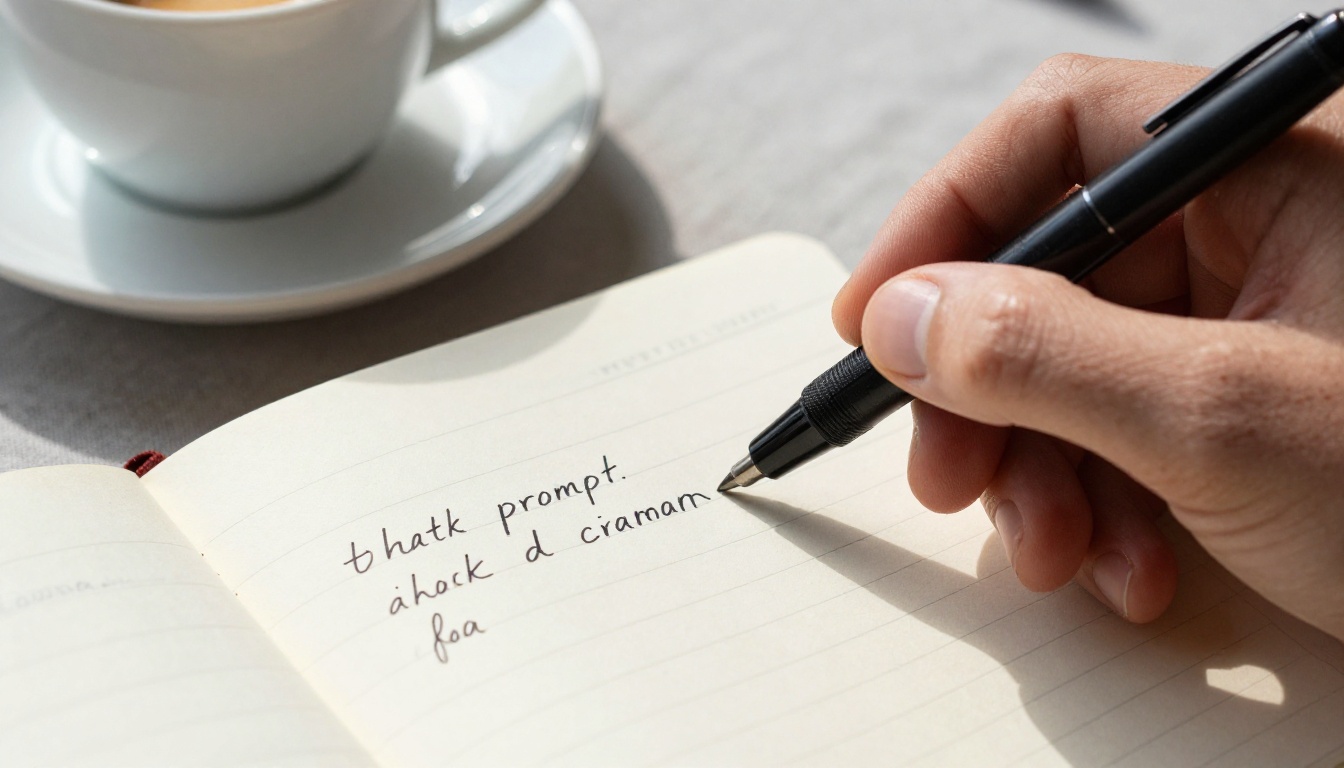 thatk prompt.
ahock d ciramam
foa